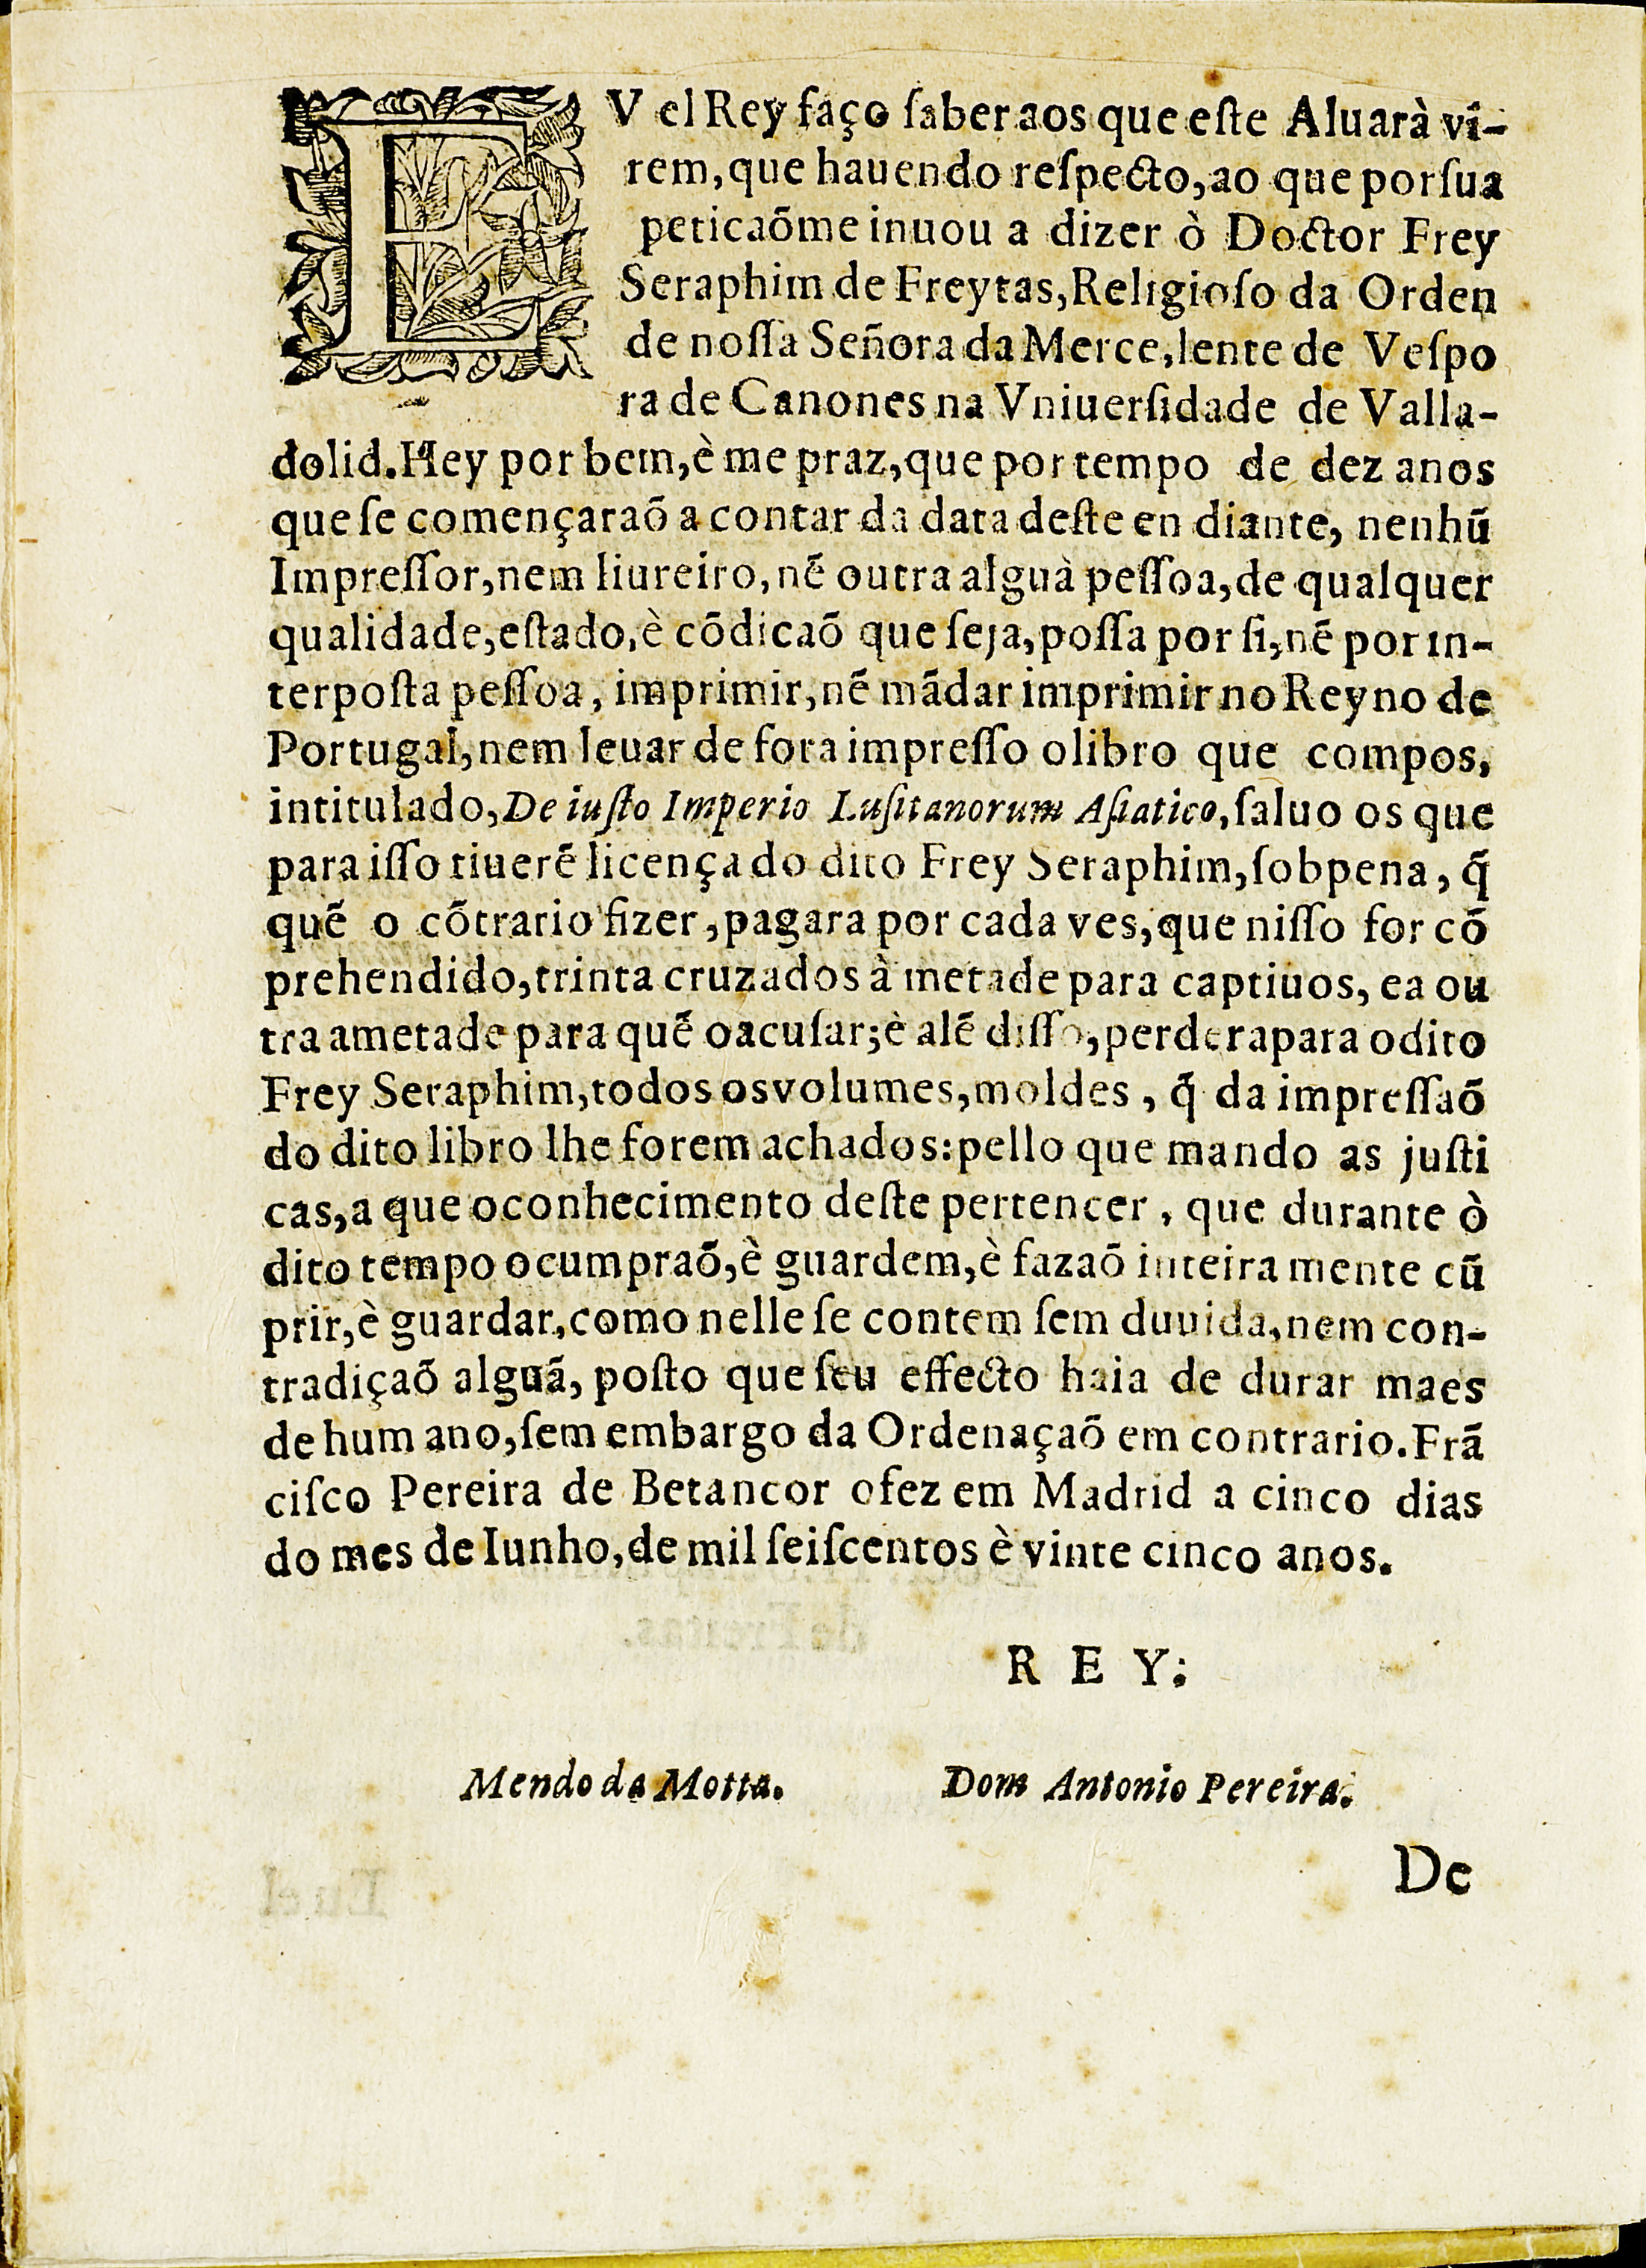 EV el Rey faço ſaber aos que eſte Aluarà vi-
rem, que hauendo reſpecto, ao que por ſua
peticaõ me inuou a dizer ò Doctor Frey
Seraphim de Freytas, Religioſo da Orden
de noſſa Señora da Merce, lente de Veſpo
ra de Canones na Vniuerſidade de Valla-
dolid. Hey por bem, è me praz, que por tempo de dez anos
que ſe començaraõ a contar da data deſte en diante, nenhũ
Impreſſor, nem liureiro, nẽ outra alguà peſſoa, de qualquer
qualidade, eſtado, è cõdicaõ que ſeja, poſſa por ſi, nẽ por in-
terpoſta peſſoa, imprimir, nẽ mãdar imprimir no Reyno de
Portugal, nem leuar de fora impreſſo o libro que compos,
intitulado, De iuſto Imperio Luſitanorum Aſiatico, ſaluo os que
para iſſo tiuerẽ licença do dito Frey Seraphim, ſobpena, q̃
quẽ o cõtrario fizer, pagara por cada ves, que niſſo for cõ
prehendido, trinta cruzados à metade para captiuos, ea ou
tra ametade para quẽ oacuſar; è alẽ diſſo, perdera para o dito
Frey Seraphim, todos os volumes, moldes, q̃ da impreſſaõ
do dito libro lhe forem achados: pello que mando as juſti
cas, a que o conhecimento deſte pertencer, que durante ò
dito tempo o cumpraõ, è guardem, è fazaõ inteira mente cũ
prir, è guardar, como nelle ſe contem ſem duuida, nem con-
tradiçaõ alguã, poſto que ſeu effecto haia de durar maes
de hum ano, ſem embargo da Ordenaçaõ em contrario. Frã
ciſco Pereira de Betancor o fez em Madrid a cinco dias
do mes de Iunho, de mil ſeiſcentos è vinte cinco anos.
R E Y:
Mendo da Motta. Dom Antonio Pereira.
De